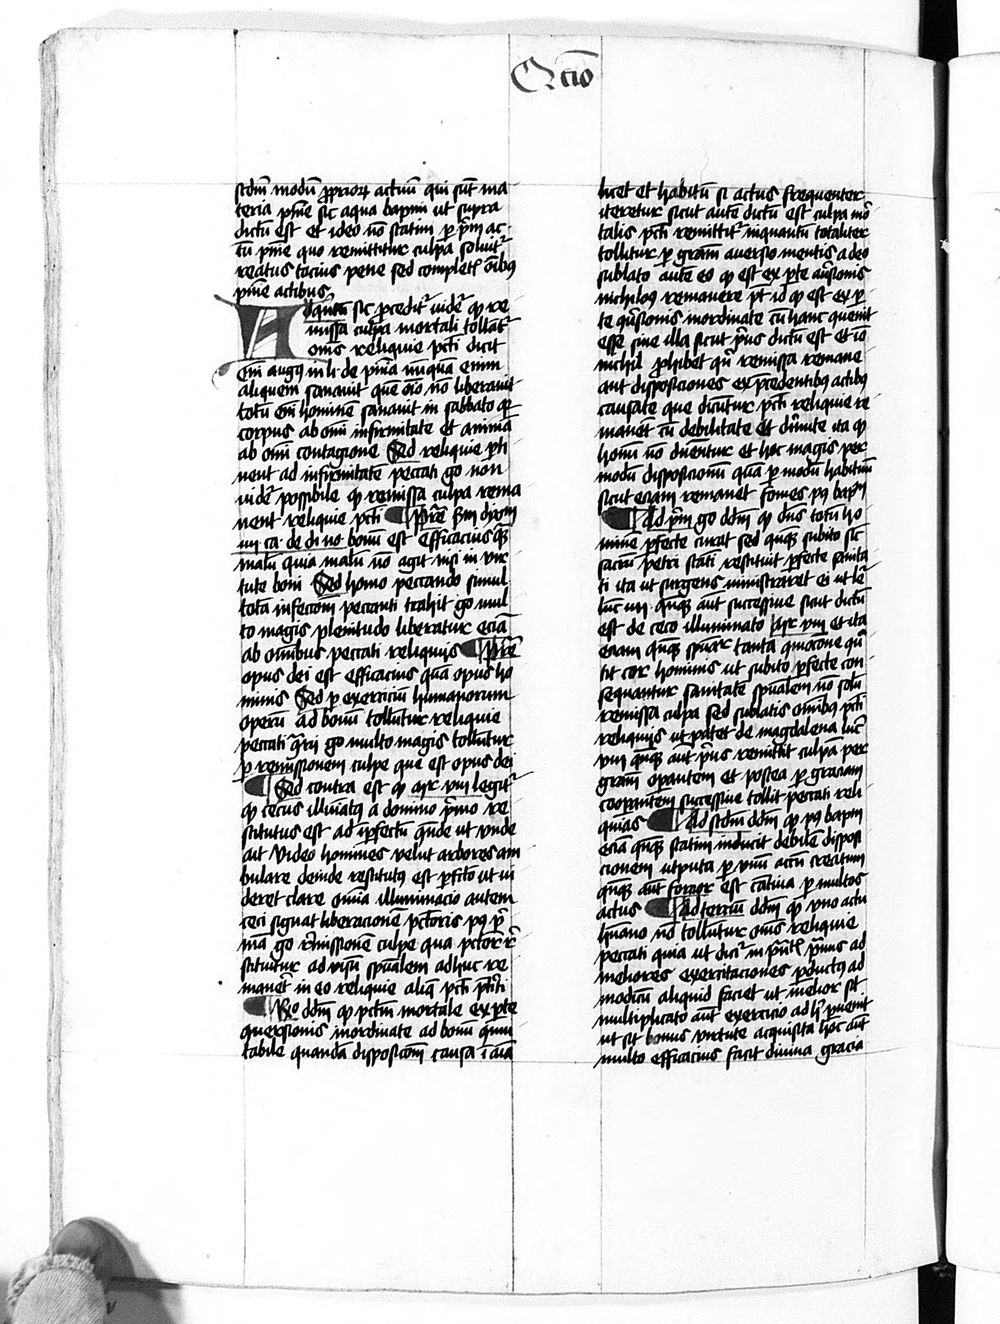 Qcio
scdm modū pprior actuū qui sūt ma
teria pnīe sic aqua baptmi ut supra
dictū est et ideo nō statim p prim ac
tū pnīe quo remittitur culpa soluitr
reatus tocius pene sed completis oībus
pnīe actibus
Ad quīntū sic predītr videtr q re
missa culpa mortali tollātr
omīs reliquie pcti dicit
em augus in li de pnīa nuquā enim
aliquem sanauit quē oīo nō liberauit
totū em hominē sanauit in sabbato qr
corpus ab omī infirmitate et animā
ab omī contagione Sed reliquie pti
nent ad infirmitatē peccati go non
videtr possibile q remissa culpa rema
nent reliquie pcti Prē scdm dyon
iiii ca de di no bonū est efficacius qs
malū quia malū nō agit nisi in vir
tute boni Sed homo peccando simul
totā infectionem peccati trahit go mul
to magis plenitudo liberatur eciā
ab omibus peccati reliquijs Prē
opus dei est efficacius quā opus ho
minis Sed p exerciciū humanorum
operū ad bonū tolluntur reliquie
peccati qrij go multo magis tollūtur
p remissionem culpe que est opus dei
Sed contra est q mr viii legitr
q cecus illuīatus a domino primo re
stitutus est ad īpfectū qnde ut vnde
ait Video homines velut arbores am
bulare deinde restitutus est pfcto ut vi
deret clare omia illuminacio autem
ceci signat liberacionē pctoris pq pri
ma go remissionē culpe qua pctor re
stituitur ad visū spualem adhuc re
manēt in eo reliquie aliq pcti ptriti
Ro ddm q pctm mortale ex pte
quersionis inordinate ad bonū qmu
tabile quandā disposicōm causat ī aīa
licet et habitū si actus frequenter
iteretur sicut autē dictū est culpa mō
talis pcti remittitr inquantū totaliter
tollitur p gram auersio mentis a deo
sublato autē eo q est ex pte auersionis
nichilo remanere pt id q est ex p
te quersionis inordinate cū hanc quenit
esse sine illa sicut prius dictū est et iō
nichil phibet qn remissa remane
ant disposiciones ex precedentibus actibus
causate que dicūtur pcti reliquie re
manēt tn debilitate et dimite ita q
homī nō dnentur et hoc magis per
modū disposicionū quā p modū habituū
sicut eciam remanet fomes pq baptm
Ad prim go ddm q dns totū ho
minē pfecte curat sed qnqs subito sic
sacrū petri statī restituit pfecte sanita
ti ita ut surgens ministraret ei ut lr
luc iiii qnqs aut successiue sicut dictū
est de ceco illuminato mr viii et ita
eciam qnqs spualr tanta qmocone qu
tit cor hominis ut subito pfecte con
sequantur sanitatē spualem nō solū
remissa culpa sed sublatis omibus pcti
reliquijs ut patet de magdalena luc
vii qnqs aut prius remittit culpā per
gram opantem et postea p graciam
coopantem successiue tollit peccati reli
quias Ad scdm ddm q pq baptm
eciā qnqs statim inducit debilem dispoi
cionem utputa p vnū actū creatum
qnqs aut forcior est cātina p multos
actus Ad terciū ddm q vno actu
humano nō tollūtur omīs reliquie
peccati quia ut dicitr in pntis prius ad
meliores exercitaciones pductus ad
modicū aliquid faciet ut melior sit
multiplicato aut exercicio ad hoc puenit
ut sit bonus virtute acquisita hoc aut
multo efficacius facit diuina gracia